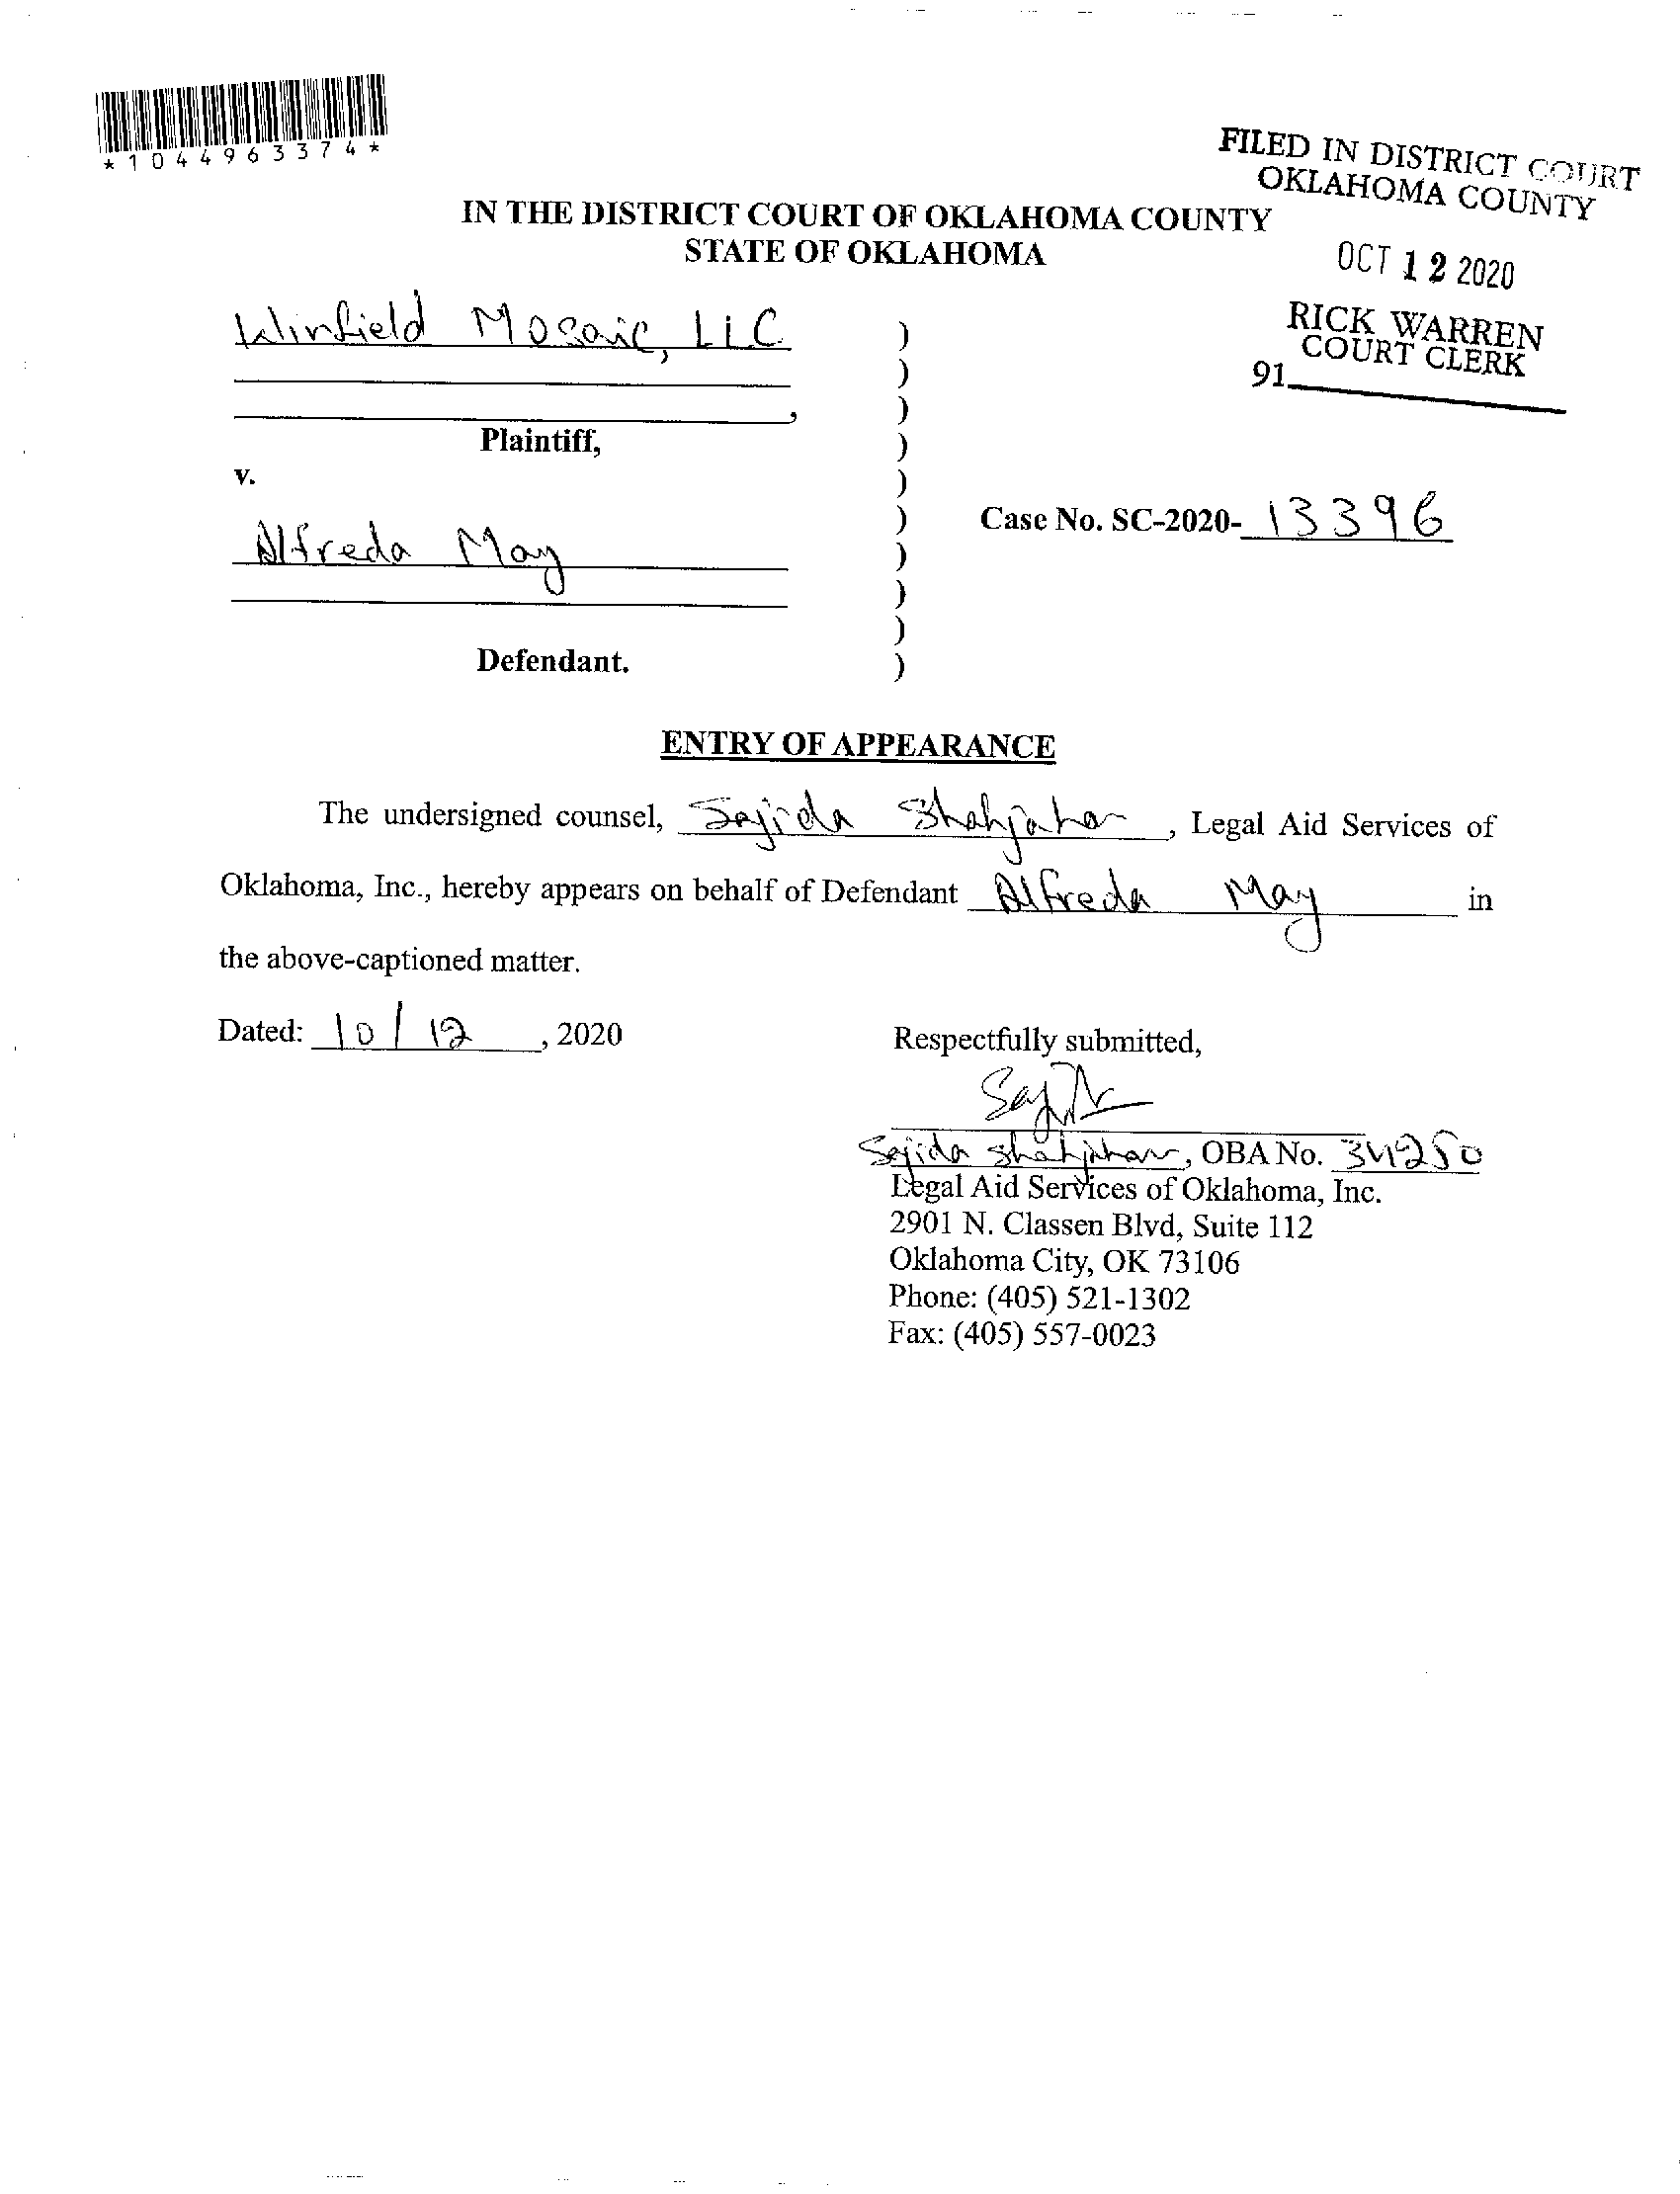 *1044963374*
FILED IN DISTRICT COURT
OKLAHOMA COUNTY
IN THE DISTRICT COURT OF OKLAHOMA COUNTY
STATE OF OKLAHOMA
OCT 12 2020
RICK WARREN
COURT CLERK
91
Winfield Mosaic, LLC
)
)
, )
Plaintiff, )
v. )
) Case No. SC-2020- 13396
Alfreda May )
)
)
Defendant. )
ENTRY OF APPEARANCE
The undersigned counsel, Sajida Shahjahan, Legal Aid Services of
Oklahoma, Inc., hereby appears on behalf of Defendant Alfreda May in
the above-captioned matter.
Dated: 10/12, 2020
Respectfully submitted,
Sajida Shahjahan, OBA No. 34250
Legal Aid Services of Oklahoma, Inc.
2901 N. Classen Blvd, Suite 112
Oklahoma City, OK 73106
Phone: (405) 521-1302
Fax: (405) 557-0023